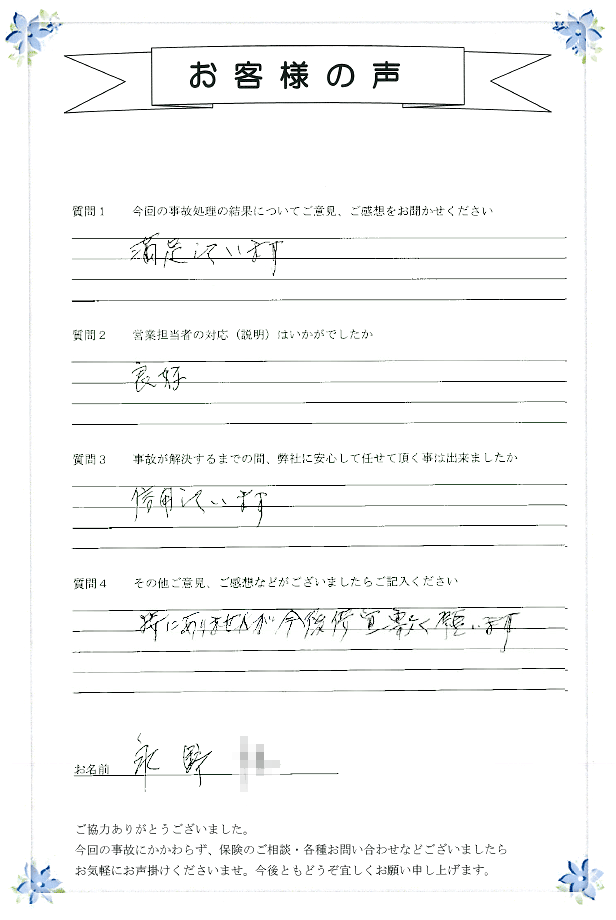 お客様の声
質問1 今回の事故処理の結果についてご意見、ご感想をお聞かせください
満足しています
質問2 営業担当者の対応（説明）はいかがでしたか
良好
質問3 事故が解決するまでの間、弊社に安心して任せて頂く事は出来ましたか
信用しています
質問4 その他ご意見、ご感想などがございましたらご記入ください
特にありませんが今後宜敷く願います
お名前 永野
ご協力ありがとうございました。
今回の事故にかかわらず、保険のご相談・各種お問い合わせなどございましたら
お気軽にお声掛けくださいませ。今後ともどうぞ宜しくお願い申し上げます。